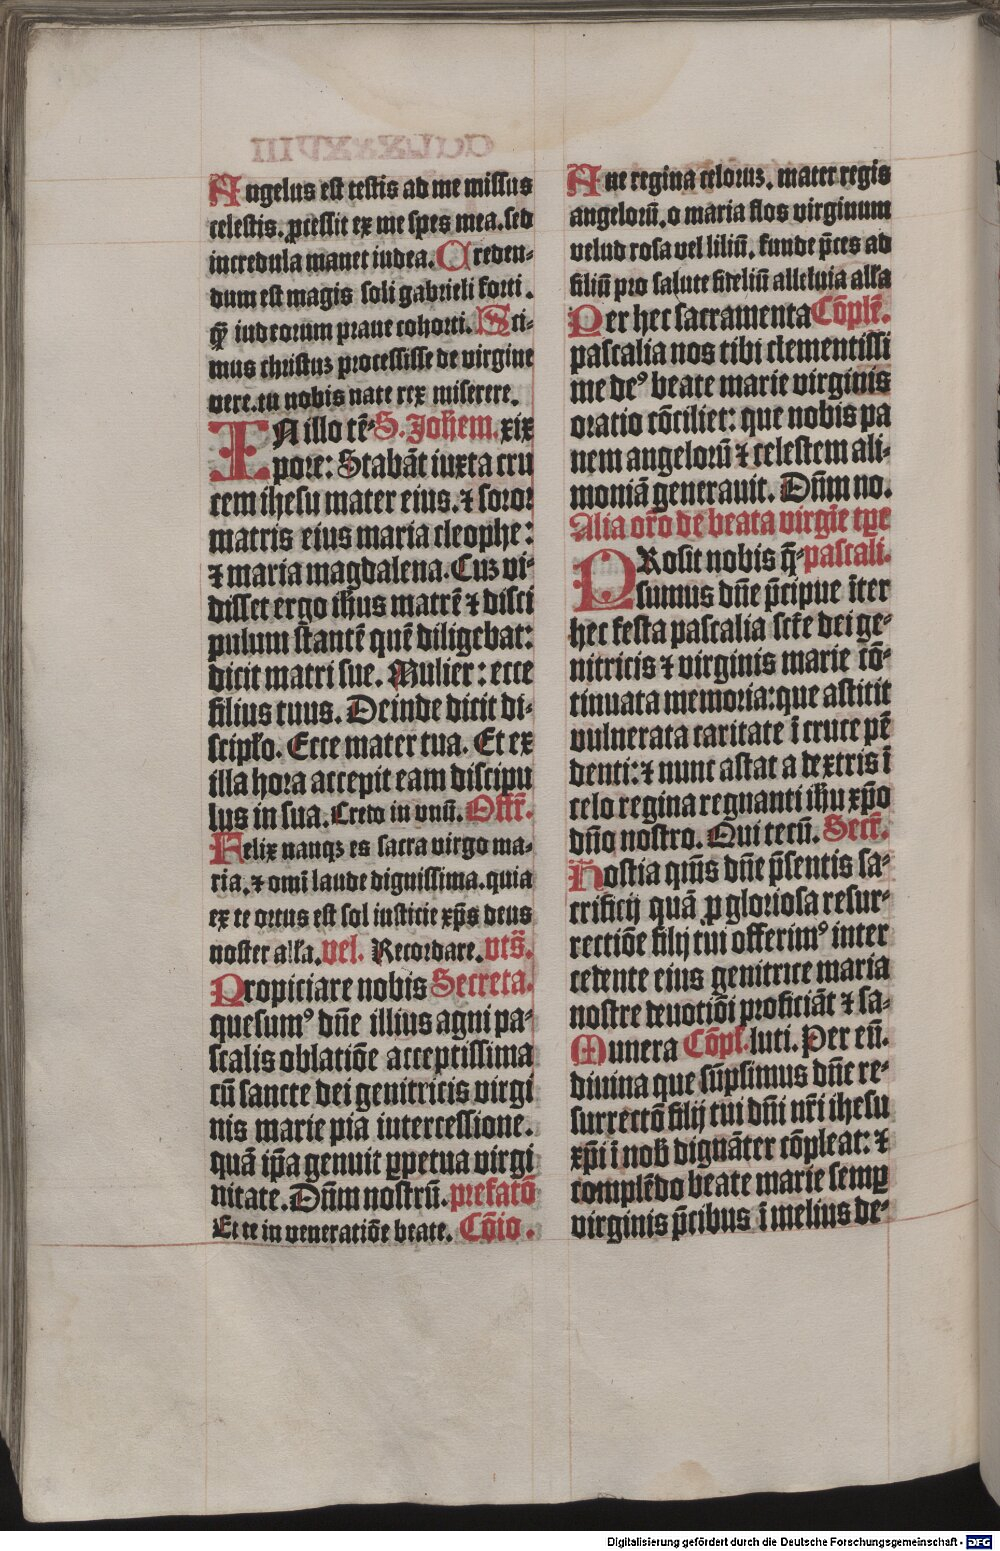 Angelus est testis ad me missus
celestis. ꝓcessit ex me spes mea. sed
incredula manet iudea. Creden-
dum est magis soli gabrieli forti.
qꝫ̄ iudeorum praue cohorti. Sci-
mus christuꝫ processisse de virgine
vere. tu nobis nate rex miserere.
IN illo tē- S. Joħem. xix
pore: Stabāt iuxta cru
cem ihesu mater eius. ⁊ soror
matris eius maria cleophe:
⁊ maria magdalena. Cuꝫ vi-
disset ergo ih̄us matrē ⁊ disci
pulum stantē quē diligebat:
dicit matri sue. Mulier: ecce
filius tuus. Deinde dicit di-
scipƚo. Ecce mater tua. Et ex
illa hora accepit eam discipu
lus in sua. Credo in vnū. Offr̄.
Felix nanqꝫ es sacra virgo ma-
ria. ⁊ omī laude dignissima. quia
ex te ortus est sol iusticie xp̄s deus
noster alƚa. vel. Recordare. vts̄.
Propiciare nobis Secreta.
quesumꝰ dn̄e illius agni pa-
scalis oblatiōe acceptissima
cū sancte dei genitricis virgi
nis marie pia intercessione.
quā ip̄a genuit ꝑpetua virgi
nitate. Dn̄m nostrū. prefatō
Et te in veneratiōe beate. Cōio.
Aue regina celoruꝫ. mater regis
angelorū. o maria flos virginum
velud rosa vel liliū. funde p̄ces ad
filiū pro salute fideliū alleluia alƚa
Per hec sacramenta Cōplē.
pascalia nos tibi clementissi
me deꝰ beate marie virginis
oratio cōciliet: que nobis pa
nem angelorū ⁊ celestem ali-
moniā generauit. Dn̄m no.
Alia or̄o de beata virgīe tp̄e
PRosit nobis q̄- pascali.
sumus dn̄e p̄cipue īter
hec festa pascalia sctē dei ge-
nitricis ⁊ virginis marie cō-
tinuata memoria: que astitit
vulnerata caritate ī cruce pē
denti: ⁊ nunc astat a dextris ī
celo regina regnanti ih̄u xp̄o
dn̄o nostro. Qui tecū. Secr̄.
Hostia qm̄s dn̄e p̄sentis sa-
crificij quā ꝓ gloriosa resur-
rectiōe filij tui offerimꝰ inter
cedente eius genitrice maria
nostre deuotiōi proficiāt ⁊ sa-
Munera Cōpƚ. luti. Per eū.
diuina que sūpsimus dn̄e re-
surrectō filij tui dn̄i nr̄i ihesu
xp̄i ī nob̄ dignāter cōpleat: ⁊
complēdo beate marie semꝑ
virginis p̄cibus ī melius de-
Digitalisierung gefördert durch die Deutsche Forschungsgemeinschaft - DFG